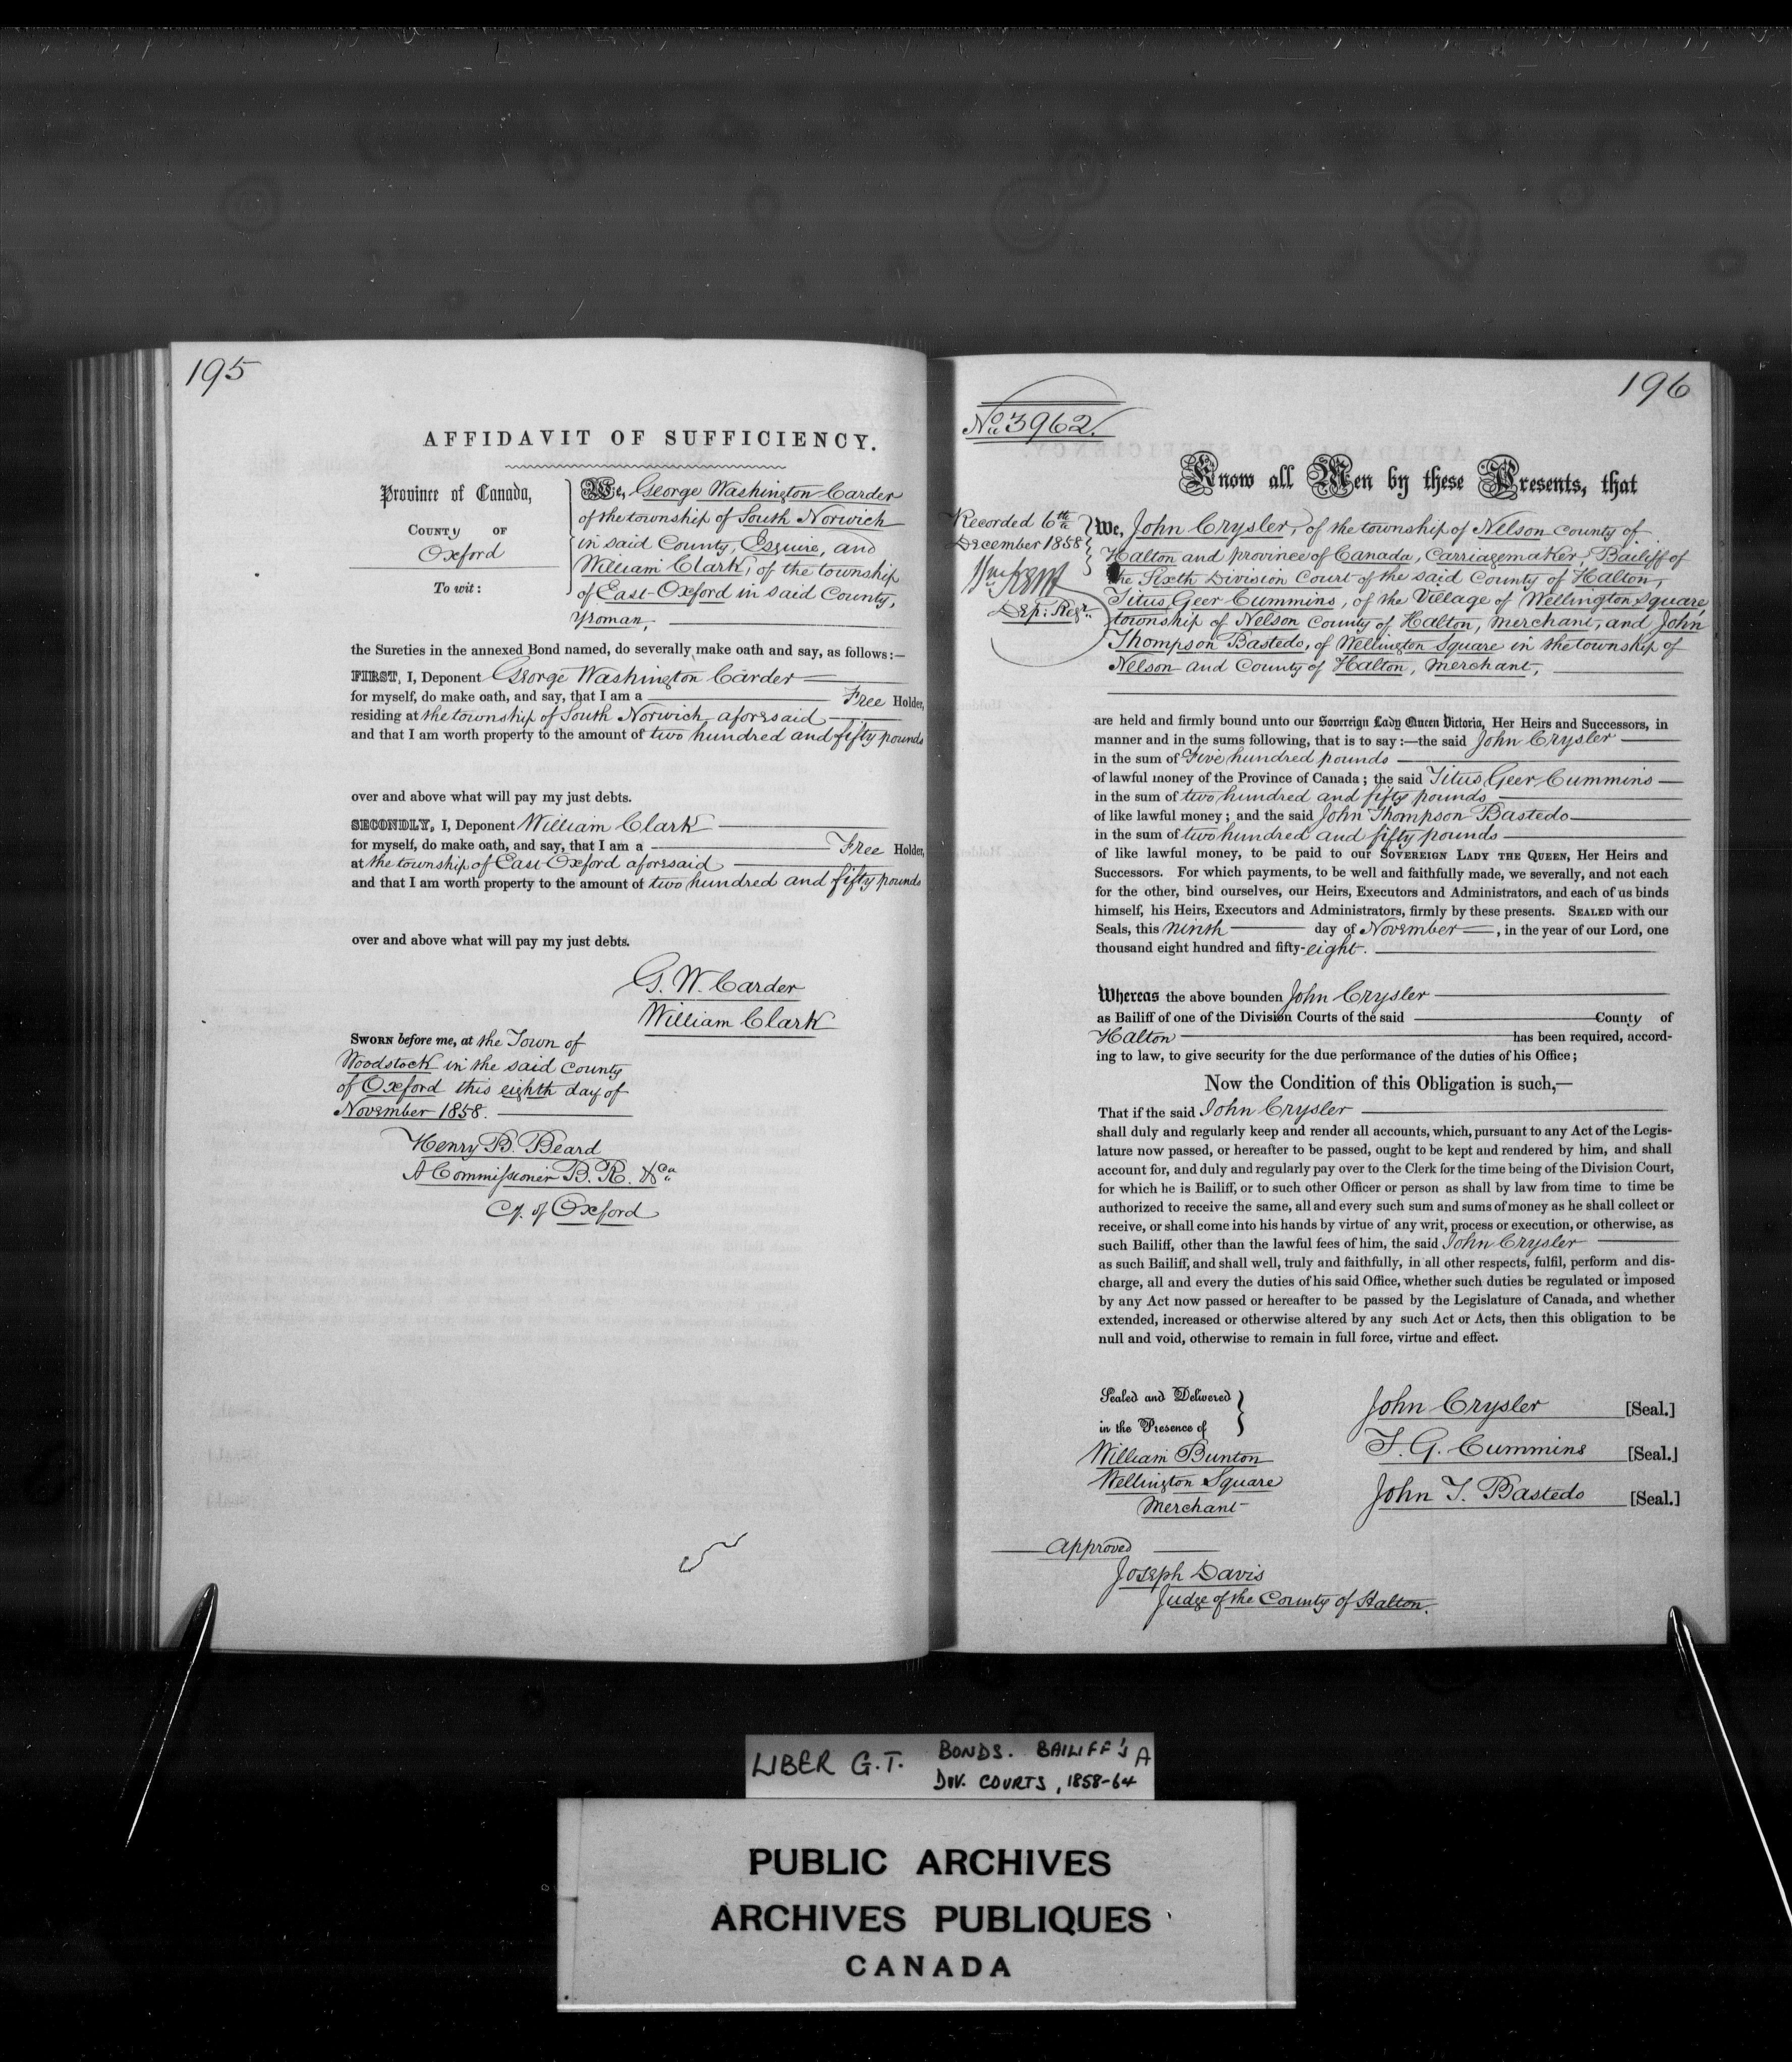 195
AFFIDAVIT OF SUFFICIENCY.
Province of Canada,
COUNTY OF
Oxford
To wit:
We, George Washington Carder
of the township of South Norwich
in said County, Esquire, and
William Clark, of the township
of East Oxford in said County,
Yeoman,
the Sureties in the annexed Bond named, do severally make oath and say, as follows:—
FIRST, I, Deponent George Washington Carder
for myself, do make oath, and say, that I am a Free Holder,
residing at the township of South Norwich aforesaid
and that I am worth property to the amount of two hundred and fifty pounds
over and above what will pay my just debts.
SECONDLY, I, Deponent William Clark
for myself, do make oath, and say, that I am a Free Holder,
at the township of East Oxford aforesaid
and that I am worth property to the amount of two hundred and fifty pounds
over and above what will pay my just debts.
G. W. Carder
William Clark
SWORN before me, at the Town of
Woodstock in the said County
of Oxford this eighth day of
November 1858.
Henry B. Beard
A Commissioner B. R. &ca
Cy. of Oxford
196
No. 3962.
Know all Men by these Presents, that
Recorded 6th
December 1858
Dep: Regr.
We, John Crysler, of the township of Nelson County of
Halton and province of Canada, Carriagemaker, Bailiff of
the Sixth Division Court of the said County of Halton,
Titus Geer Cummins, of the Village of Wellington Square,
township of Nelson County of Halton, Merchant, and John
Thompson Bastedo, of Wellington Square in the township of
Nelson and County of Halton, Merchant,
are held and firmly bound unto our Sovereign Lady Queen Victoria, Her Heirs and Successors, in
manner and in the sums following, that is to say:—the said John Crysler
in the sum of Five hundred pounds
of lawful money of the Province of Canada; the said Titus Geer Cummins
in the sum of two hundred and fifty pounds
of like lawful money; and the said John Thompson Bastedo
in the sum of two hundred and fifty pounds
of like lawful money, to be paid to our SOVEREIGN LADY THE QUEEN, Her Heirs and
Successors. For which payments, to be well and faithfully made, we severally, and not each
for the other, bind ourselves, our Heirs, Executors and Administrators, and each of us binds
himself, his Heirs, Executors and Administrators, firmly by these presents. SEALED with our
Seals, this ninth day of November, in the year of our Lord, one
thousand eight hundred and fifty-eight.
Whereas the above bounden John Crysler
as Bailiff of one of the Division Courts of the said County of
Halton has been required, accord-
ing to law, to give security for the due performance of the duties of his Office;
Now the Condition of this Obligation is such,—
That if the said John Crysler
shall duly and regularly keep and render all accounts, which, pursuant to any Act of the Legis-
lature now passed, or hereafter to be passed, ought to be kept and rendered by him, and shall
account for, and duly and regularly pay over to the Clerk for the time being of the Division Court,
for which he is Bailiff, or to such other Officer or person as shall by law from time to time be
authorized to receive the same, all and every such sum and sums of money as he shall collect or
receive, or shall come into his hands by virtue of any writ, process or execution, or otherwise, as
such Bailiff, other than the lawful fees of him, the said John Crysler
as such Bailiff, and shall well, truly and faithfully, in all other respects, fulfil, perform and dis-
charge, all and every the duties of his said Office, whether such duties be regulated or imposed
by any Act now passed or hereafter to be passed by the Legislature of Canada, and whether
extended, increased or otherwise altered by any such Act or Acts, then this obligation to be
null and void, otherwise to remain in full force, virtue and effect.
Sealed and Delivered
in the Presence of
William Bunton
Wellington Square
Merchant
John Crysler [Seal.]
T. G. Cummins [Seal.]
John T. Bastedo [Seal.]
Approved
Joseph Davis
Judge of the County of Halton.
LIBER G.T. BONDS. BAILIFF'S A
DIV. COURTS, 1858-64
PUBLIC ARCHIVES
ARCHIVES PUBLIQUES
CANADA